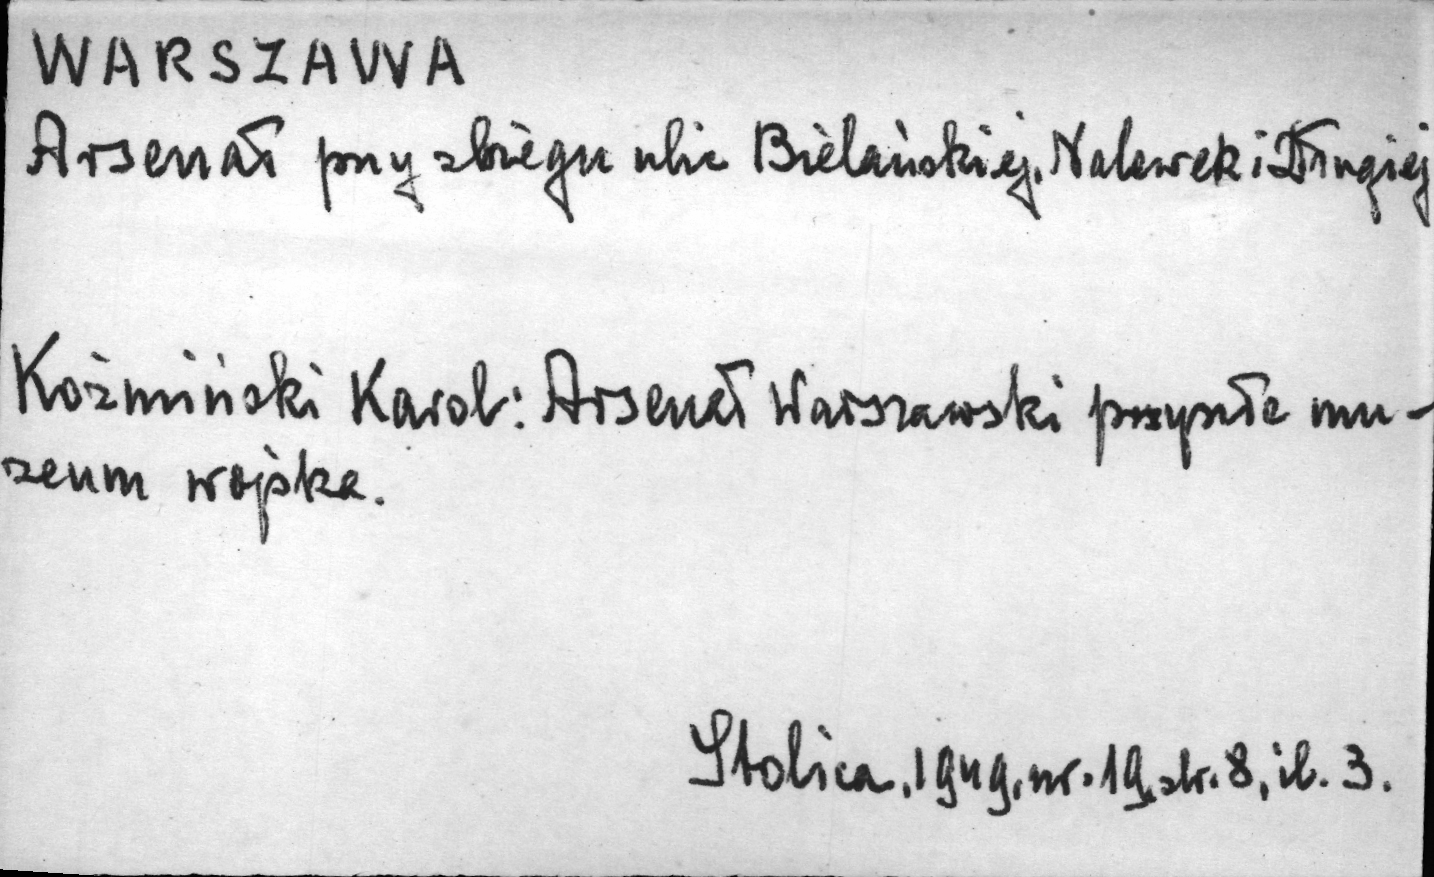 WARSZAWA
Arsenał przy zbiegu ulic Bielańskiej, Nalewek i Długiej
Koźmiński Karol: Arsenał Warszawski przyszłe mu-
zeum wojska.
Stolica, 1949, nr. 19, str. 8, il. 3.